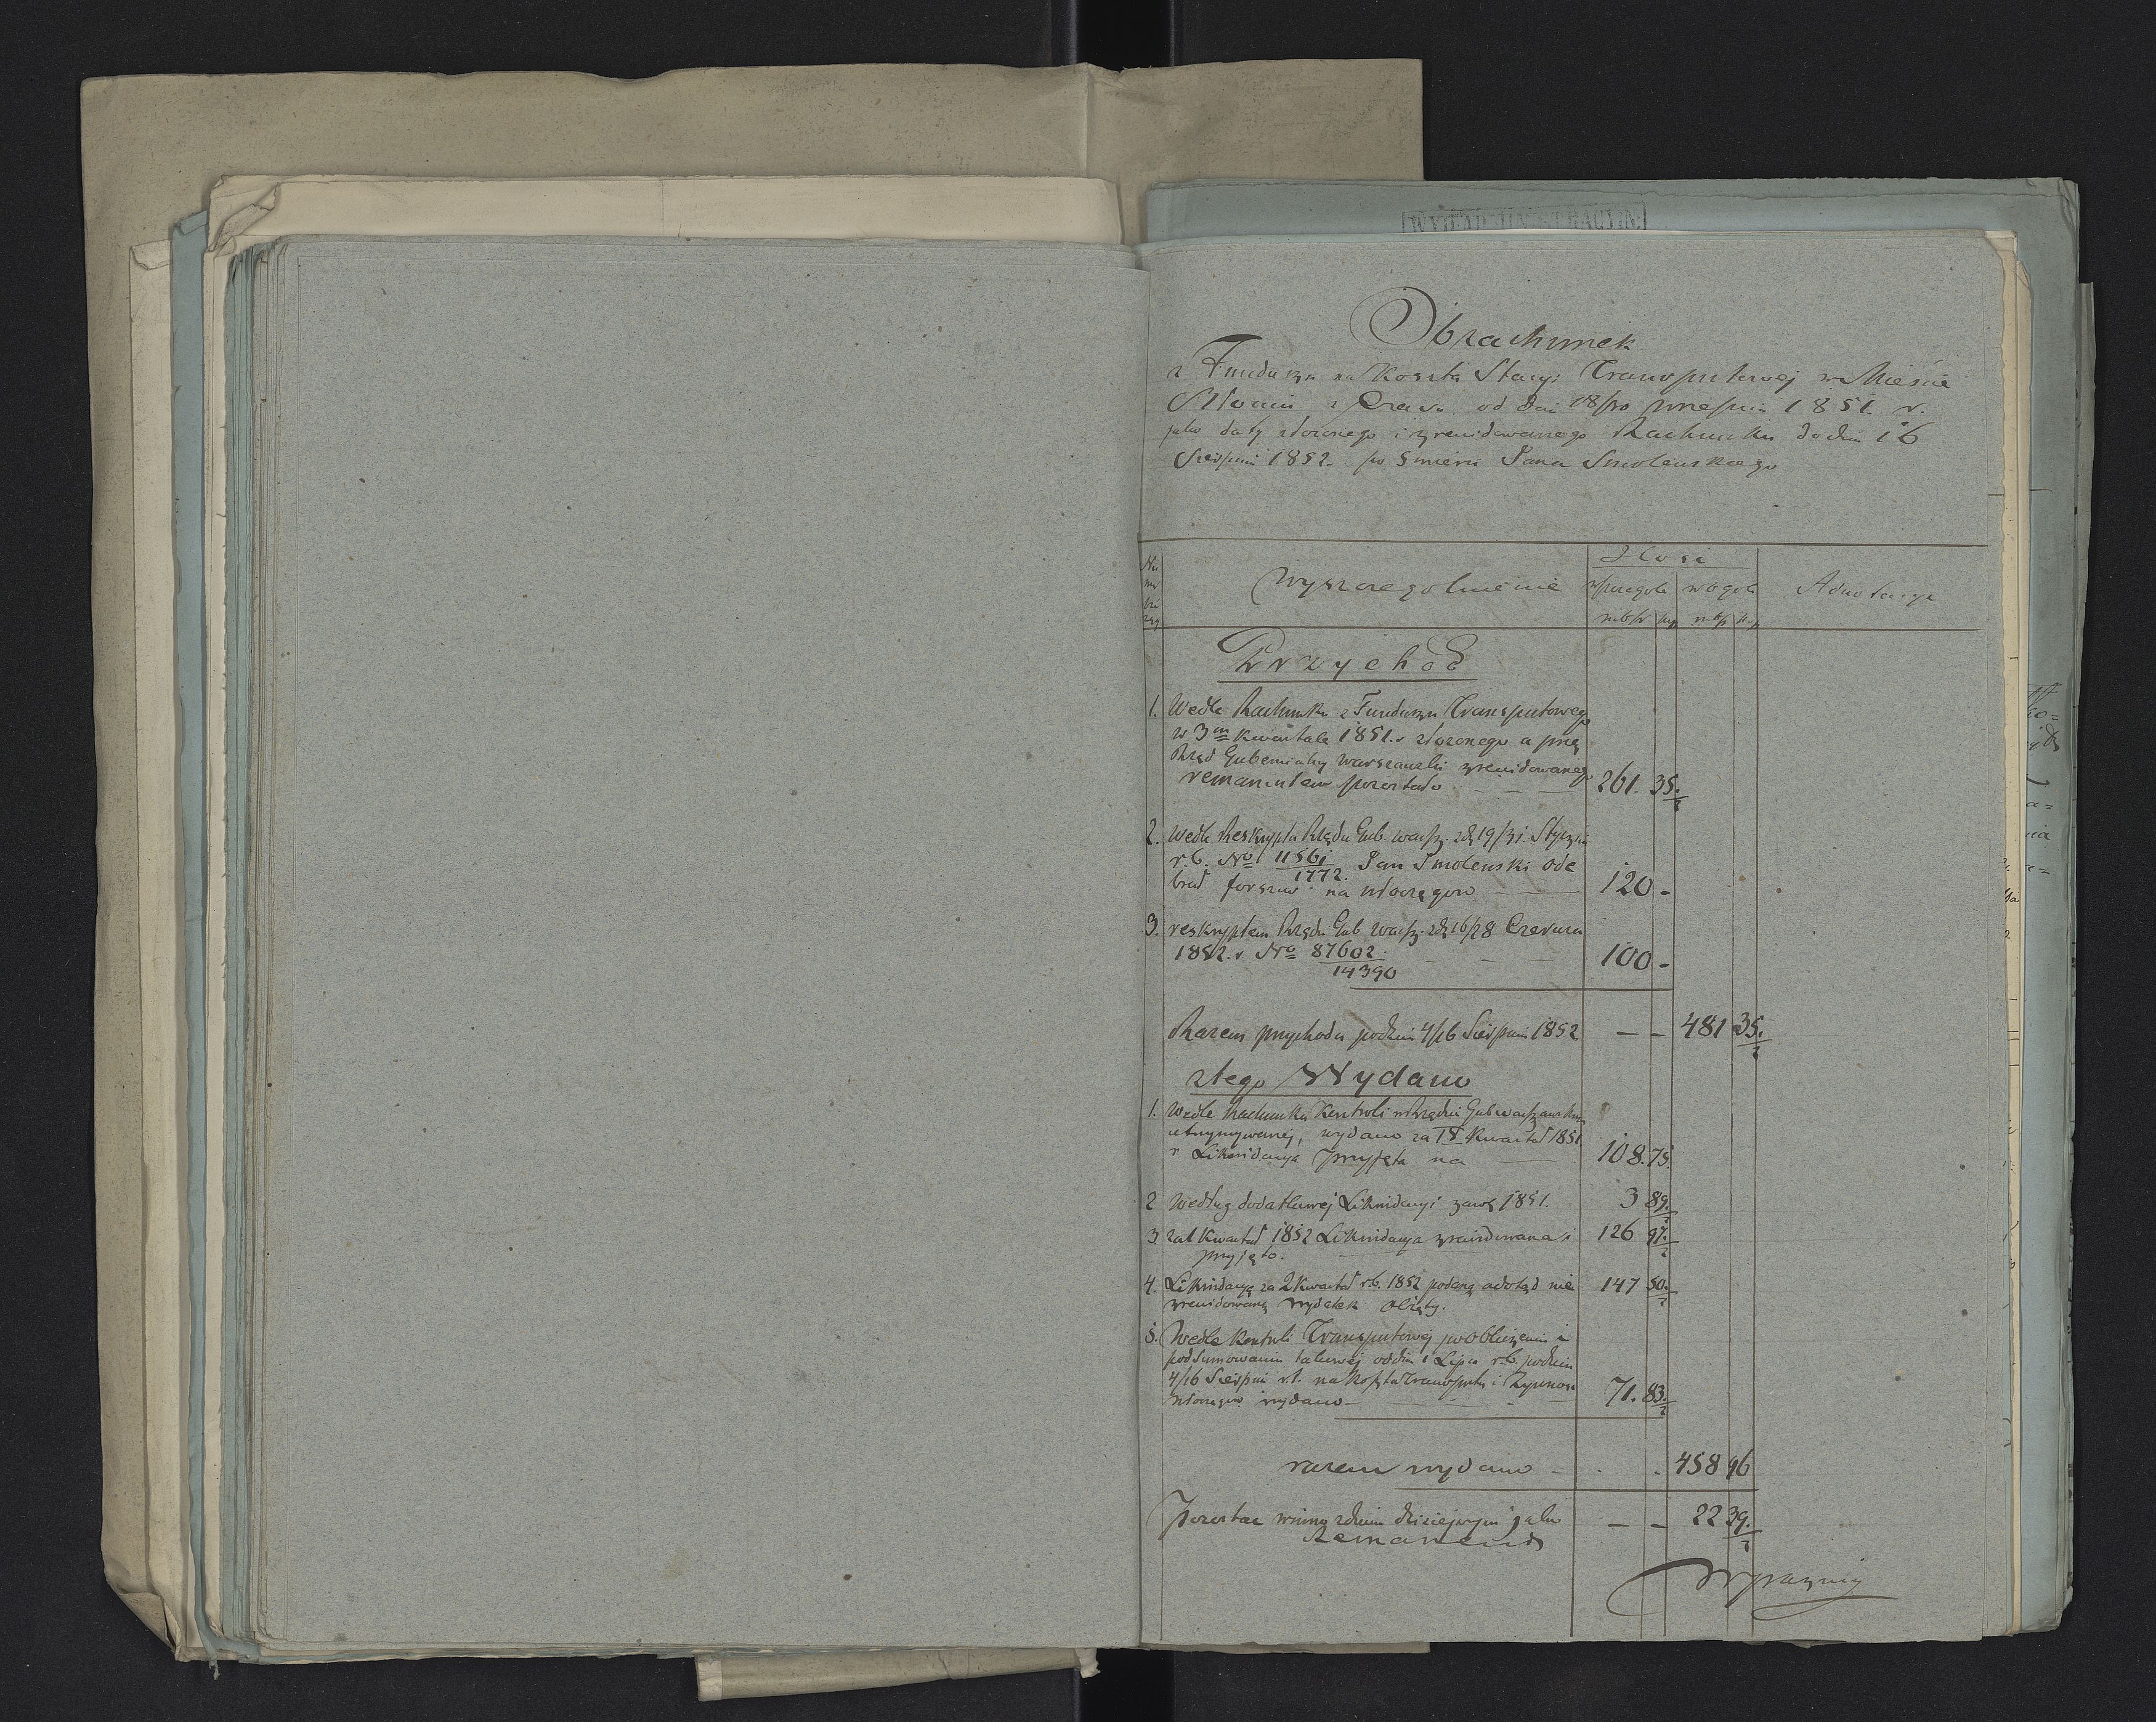 Obrachunek
z Funduszu na Koszta Stacyi Transportowej w Mieście
z Czasu od dnia 18/30 Wrzesnia 1851. r.
jako daty złożonego i zrewidowanego Rachunku do dnia 16
Sierpnia 1852. po Smierci Pana Smolenskiego
Ilość
Wyszczegolnienie
wszczegole wogole
Adnotacya
rubsr kop rubsr kop
Przychod
1. Wedle Rachunku z Funduszu Transportowego
w 3m kwartale 1851. r złożonego a przez
Rząd Gubernialny Warszawski zrewidowanego
remanentem pozostało 261. 35.½
2. Wedle Reskryptu Rządu Gub. Warsz. z d 19/31 Stycznia
r. b. No 11561/1772. Pan Smolenski ode
brał forszus na włoczęgow 120 -
3. reskryptem Rządu Gub Warsz. z d 16/28 Czerwca
1852. r No 87602/14390 100 -
Razem przychodu po dzień 4/16 Sierpnia 1852 — — 481 35.½
z tego Wydano
1. Wedle Rachunku Kontroli w Rządzie Gub Warszawskim
utrzymywanej, wydano za IV Kwartał 1851
r Likwidacya przyjęta na 108. 75.
2 Według dodatkowej Likwidacyi 1851. 3 89.½
3. za 1 Kwartał 1852 Likwidacya zrewidowana i 126 97.½
przyjęto.
4. Likwidacyą za 2 Kwartał r. b. 1852 podaną a dotąd nie 147 50.½
zrewidowaną wydatek objęty.
5. Wedle Kontroli Transportowej po obliczeniu i
podsumowaniu takowej od dnia 1 Lipca r. b. po dzien
4/16 Sierpnia r. b. na Koszta Transportu i Żywnosc
włoczęgow wydano 71. 83.½
razem wydano 458 96
Pozostac winno z dniem dzisiejszym jako — — 22 39.½
Remanent